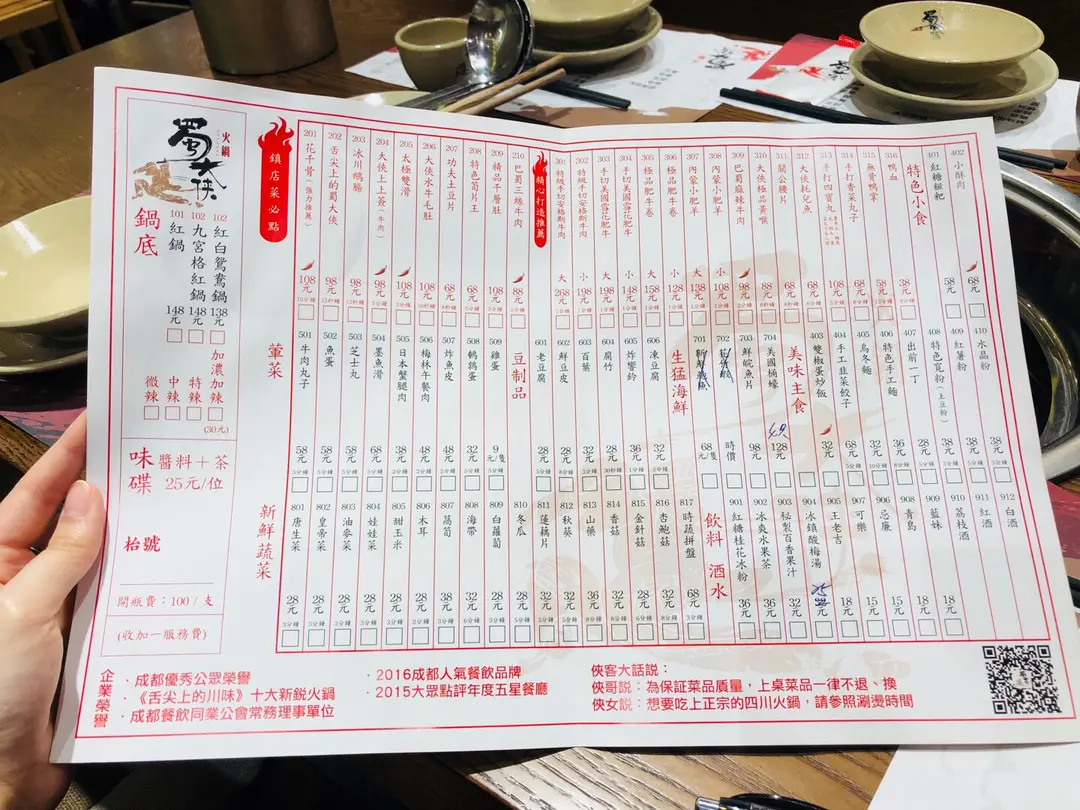 火鍋
蜀大俠
鍋底
101 紅鍋 148元
102 九宮格紅鍋 148元
102 紅白鴛鴦鍋 138元
微辣
中辣
特辣
加濃加辣 (30元)
味碟 醬料＋茶 25元/位
枱號
開瓶費：100 / 支
(收加一服務費)
鎮店菜必點
201 花千骨（強力推薦） 108元
202 舌尖上的蜀大俠 98元
203 冰川鵝腸 98元
204 大俠上上簽（牛肉） 98元 5分鐘
205 太極雙滑 108元
206 大俠水牛毛肚 108元
207 功夫土豆片 68元
208 特色筍片王 68元
209 精品千層肚 108元
210 巴蜀三絲牛肉 88元 5分鐘
精心打造推薦
301 特級手切安格斯牛肉 大 268元
302 特級手切安格斯牛肉 小 198元
303 手切美國雪花肥牛 大 198元
304 手切美國雪花肥牛 小 148元
305 極品肥牛卷 大 158元
306 極品肥牛卷 小 128元
307 內蒙小肥羊 大 138元
308 內蒙小肥羊 小 108元
309 巴蜀麻辣牛肉 98元
310 大俠極品黃喉 88元
311 關公腰片 68元
312 大俠耗兒魚 68元
313 手打四寶丸 108元
314 手打香菜丸子 68元
315 無骨鴨掌 58元
316 鴨血 38元
特色小食
401 紅糖糍粑 58元
402 小酥肉 68元
葷菜
501 牛肉丸子 58元 5分鐘
502 魚蛋 58元
503 芝士丸 58元
504 墨魚滑 68元
505 日本蟹腿肉 38元
506 梅林午餐肉 48元
507 炸魚皮 48元
508 鵪鶉蛋 32元
509 雞蛋 9元/隻
豆制品
601 老豆腐 28元
602 鮮豆皮 28元
603 百葉 32元
604 腐竹 28元
605 炸響鈴 36元
606 凍豆腐 32元
生猛海鮮
701 68元/隻
702 時價
703 鮮皖魚片 98元
704 美國桶蠔 128元
美味主食
403 雙椒蛋炒飯 32元
404 手工韭菜餃子 68元
405 烏冬麵 32元
406 特色手工麵 36元
407 出前一丁 28元
408 特色寬粉（土豆粉） 38元
409 紅薯粉 38元
410 水晶粉 38元
新鮮蔬菜
801 唐生菜 28元 3分鐘
802 皇帝菜 28元
803 油麥菜 28元
804 娃娃菜 28元
805 甜玉米 28元
806 木耳 28元
807 萵筍 38元
808 海帶 32元
809 白蘿蔔 28元
810 冬瓜 28元
811 蓮藕片 32元
812 秋葵 32元
813 山藥 36元
814 香菇 32元
815 金針菇 28元
816 杏鮑菇 32元
817 時蔬拼盤 68元
飲料 酒水
901 紅糖桂花冰粉 36元
902 冰爽水果茶 36元
903 秘製百香果汁 32元
904 冰鎮酸梅湯
905 王老吉 18元
906 可樂 15元
907 忌廉 15元
908 青島 18元
909 藍妹 18元
910 荔枝酒
911 紅酒
912 白酒
企業榮譽
· 成都優秀公眾榮譽
· 《舌尖上的川味》十大新銳火鍋
· 成都餐飲同業公會常務理事單位
· 2016成都人氣餐飲品牌
· 2015大眾點評年度五星餐廳
俠客大話說：
俠哥說：為保証菜品質量，上桌菜品一律不退、換
俠女說：想要吃上正宗的四川火鍋，請參照涮燙時間